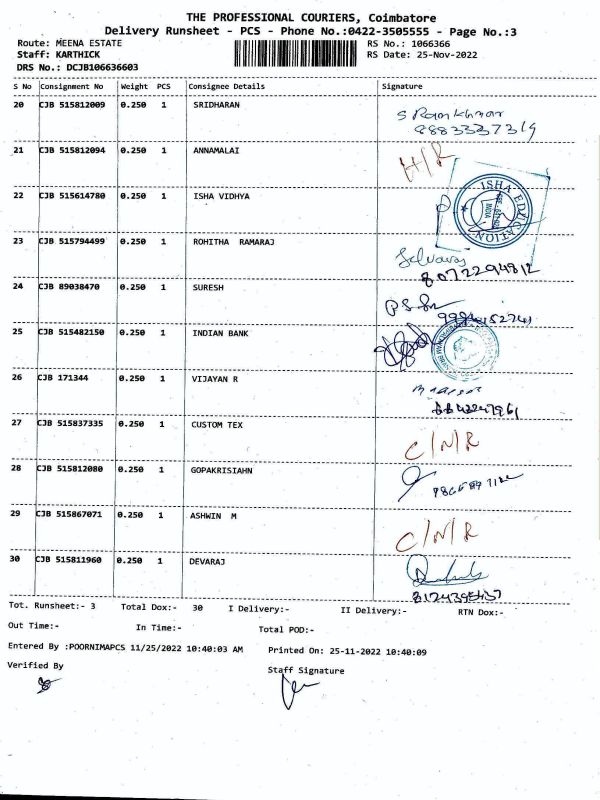 THE PROFESSIONAL COURIERS, Coimbatore
Delivery Runsheet - PCS - Phone No.:0422-3505555 - Page No.:3
Route: MEENA ESTATE
RS No.: 1066366
Staff: KARTHICK
RS Date: 25-Nov-2022
DRS No.: DCJB106636603
S No Consignment No Weight PCS Consignee Details Signature
20 CJB 515812009 0.250 1 SRIDHARAN
9883337319
21 CJB 515812094 0.250 1 ANNAMALAI
22 CJB 515614780 0.250 1 ISHA VIDHYA
ISHA EDUCATION
INDIA
23 CJB 515794499 0.250 1 ROHITHA RAMARAJ
Selvaraj
8072294812
24 CJB 89038470 0.250 1 SURESH
25 CJB 515482150 0.250 1 INDIAN BANK
26 CJB 171344 0.250 1 VIJAYAN R
27 CJB 515837335 0.250 1 CUSTOM TEX
C/N/R
28 CJB 515812080 0.250 1 GOPAKRISIAHN
29 CJB 515867071 0.250 1 ASHWIN M
C/N/R
30 CJB 515811960 0.250 1 DEVARAJ
Tot. Runsheet:- 3 Total Dox:- 30 I Delivery:- II Delivery:- RTN Dox:-
Out Time:- In Time:- Total POD:-
Entered By :POORNIMAPCS 11/25/2022 10:40:03 AM Printed On: 25-11-2022 10:40:09
Verified By
Staff Signature